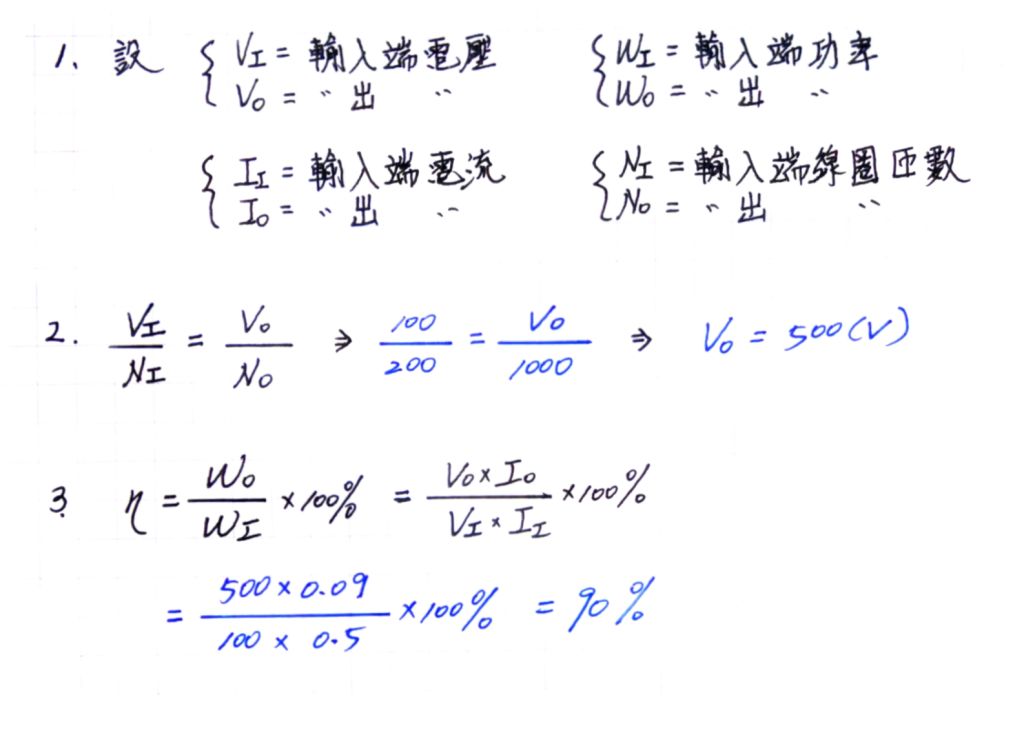 1. 設 { V_I = 輸入端電壓 { W_I = 輸入端功率
V_O = 〃 出 〃 W_O = 〃 出 〃
{ I_I = 輸入端電流 { N_I = 輸入端線圈匝數
I_O = 〃 出 〃 N_O = 〃 出 〃
2. V_I/N_I = V_O/N_O ⇒ 100/200 = V_O/1000 ⇒ V_O = 500(V)
3. η = W_O/W_I × 100% = V_O × I_O/V_I × I_I × 100%
= 500 × 0.09/100 × 0.5 × 100% = 90%